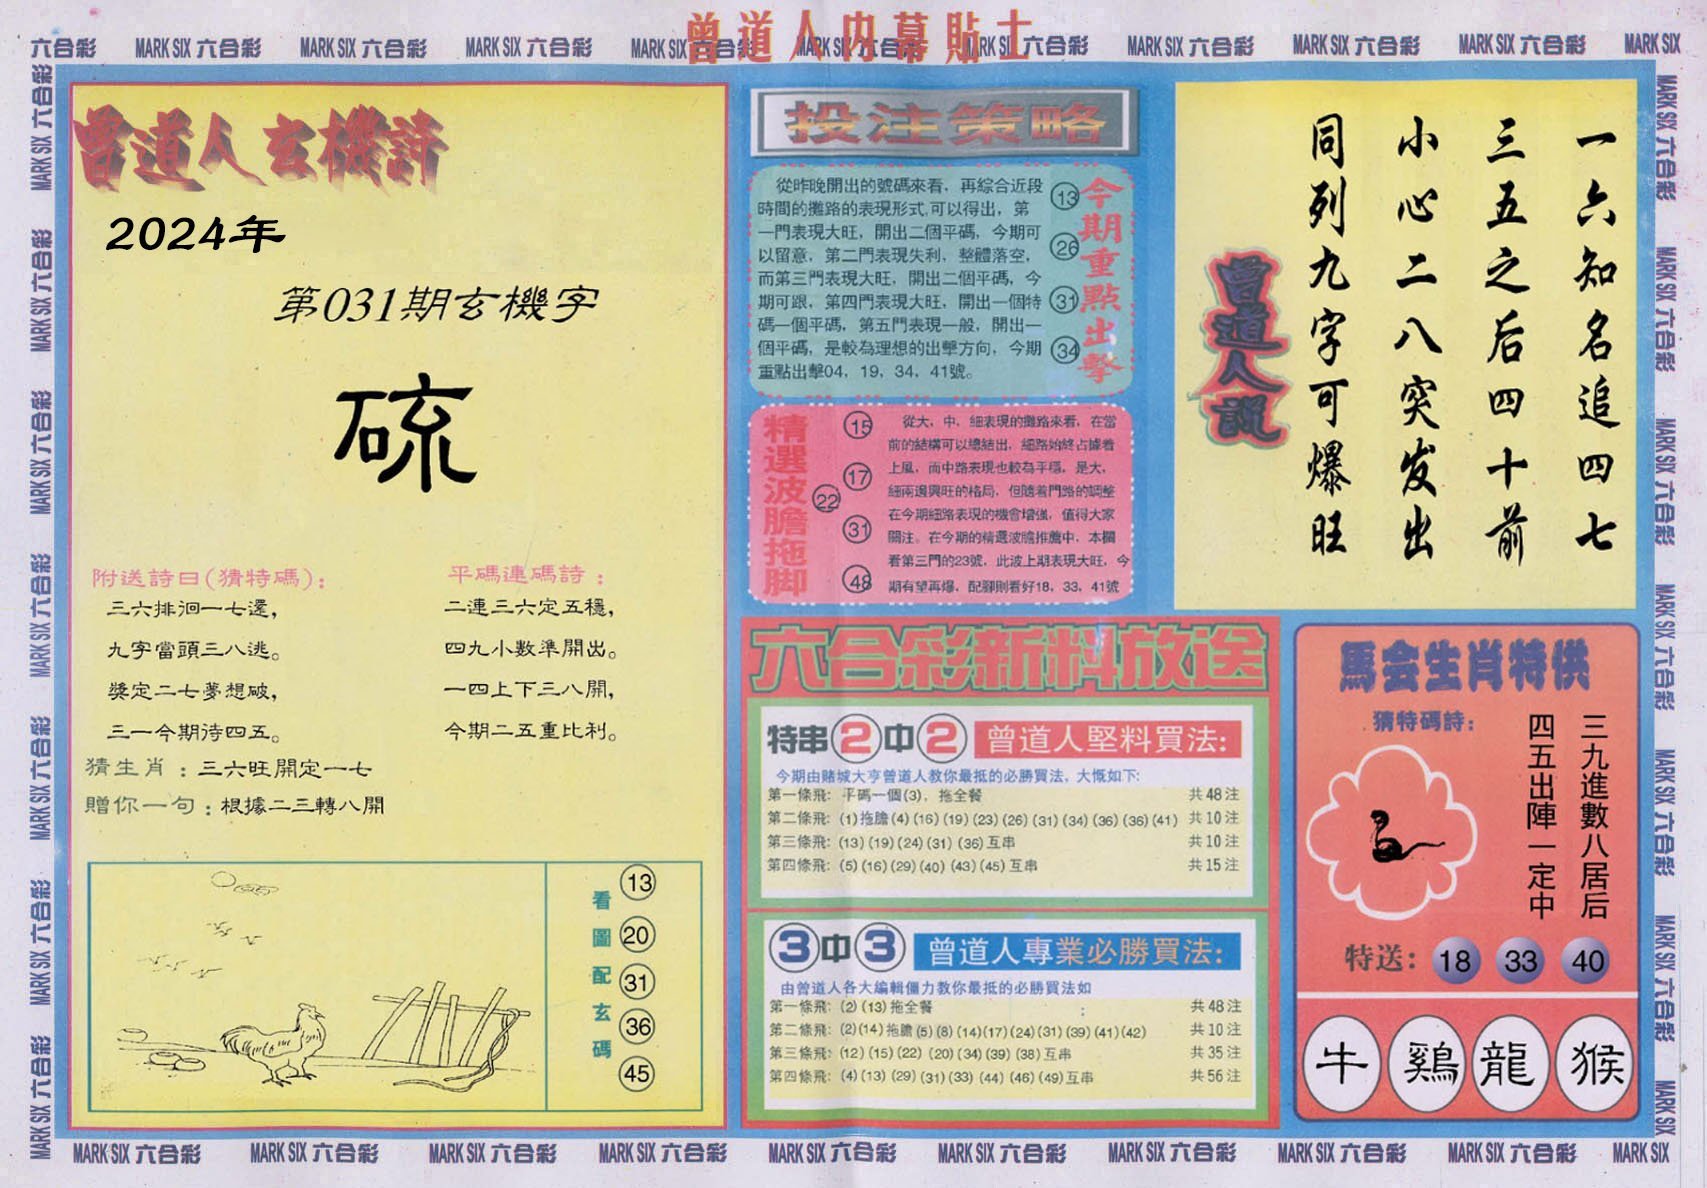 曾道人内幕貼士
六合彩 MARK SIX 六合彩 MARK SIX 六合彩 MARK SIX 六合彩 MARK SIX 六合彩 MARK SIX 六合彩 MARK SIX 六合彩 MARK SIX 六合彩 MARK SIX 六合彩 MARK SIX 六合彩 MARK SIX
曾道人玄機詩
2024年
第031期玄機字
硫
附送詩曰(猜特碼):
三六排洄一七還,
九字當頭三八逃。
獎定二七夢想破,
三一今期待四五。
平碼連碼詩：
二連三六定五穩,
四九小數準開出。
一四上下三八開,
今期二五重比利。
猜生肖：三六旺開定一七
贈你一句：根據二三轉八開
看圖配玄碼
13
20
31
36
45
投注策略
從昨晚開出的號碼來看，再綜合近段
時間的攤路的表現形式,可以得出，第
一門表現大旺，開出二個平碼，今期可
以留意，第二門表現失利，整體落空，
而第三門表現大旺，開出二個平碼，今
期可跟，第四門表現大旺，開出一個特
碼一個平碼，第五門表現一般，開出一
個平碼，是較為理想的出擊方向，今期
重點出擊04，19，34，41號。
13
26
31
34
今期重點出擊
精選波膽拖脚
15
17
22
31
48
從大，中，細表現的攤路來看，在當
前的結構可以總結出，細路始終占據着
上風，而中路表現也較為平穩，是大，
細兩邊興旺的格局，但隨着門路的調整
在今期細路表現的機會增強，值得大家
關注。在今期的精選波膽推薦中，本欄
看第三門的23號，此波上期表現大旺，今
期有望再爆，配腳則看好18，33，41號
六合彩新料放送
特串2中2 曾道人堅料買法:
今期由賭城大亨曾道人教你最抵的必勝買法，大慨如下:
第一條飛: 平碼一個(3)，拖全餐 共48注
第二條飛: (1)拖膽(4)(16)(19)(23)(26)(31)(34)(36)(36)(41) 共10注
第三條飛: (13)(19)(24)(31)(36)互串 共10注
第四條飛: (5)(16)(29)(40)(43)(45)互串 共15注
3中3 曾道人專業必勝買法:
由曾道人各大編輯僵力教你最抵的必勝買法如
第一條飛: (2)(13)拖全餐 : 共48注
第二條飛: (2)(14)拖膽(5)(8)(14)(17)(24)(31)(39)(41)(42) 共10注
第三條飛: (12)(15)(22)(20)(34)(39)(38)互串 共35注
第四條飛: (4)(13)(29)(31)(33)(44)(46)(49)互串 共56注
一六知名追四七
三五之后四十前
小心二八突发出
同列九字可爆旺
曾道人説
馬会生肖特供
猜特碼詩:
三九進數八居后
四五出陣一定中
特送: 18 33 40
牛 鷄 龍 猴
MARK SIX 六合彩 MARK SIX 六合彩 MARK SIX 六合彩 MARK SIX 六合彩 MARK SIX 六合彩 MARK SIX 六合彩 MARK SIX 六合彩 MARK SIX 六合彩 MARK SIX 六合彩 MARK SIX